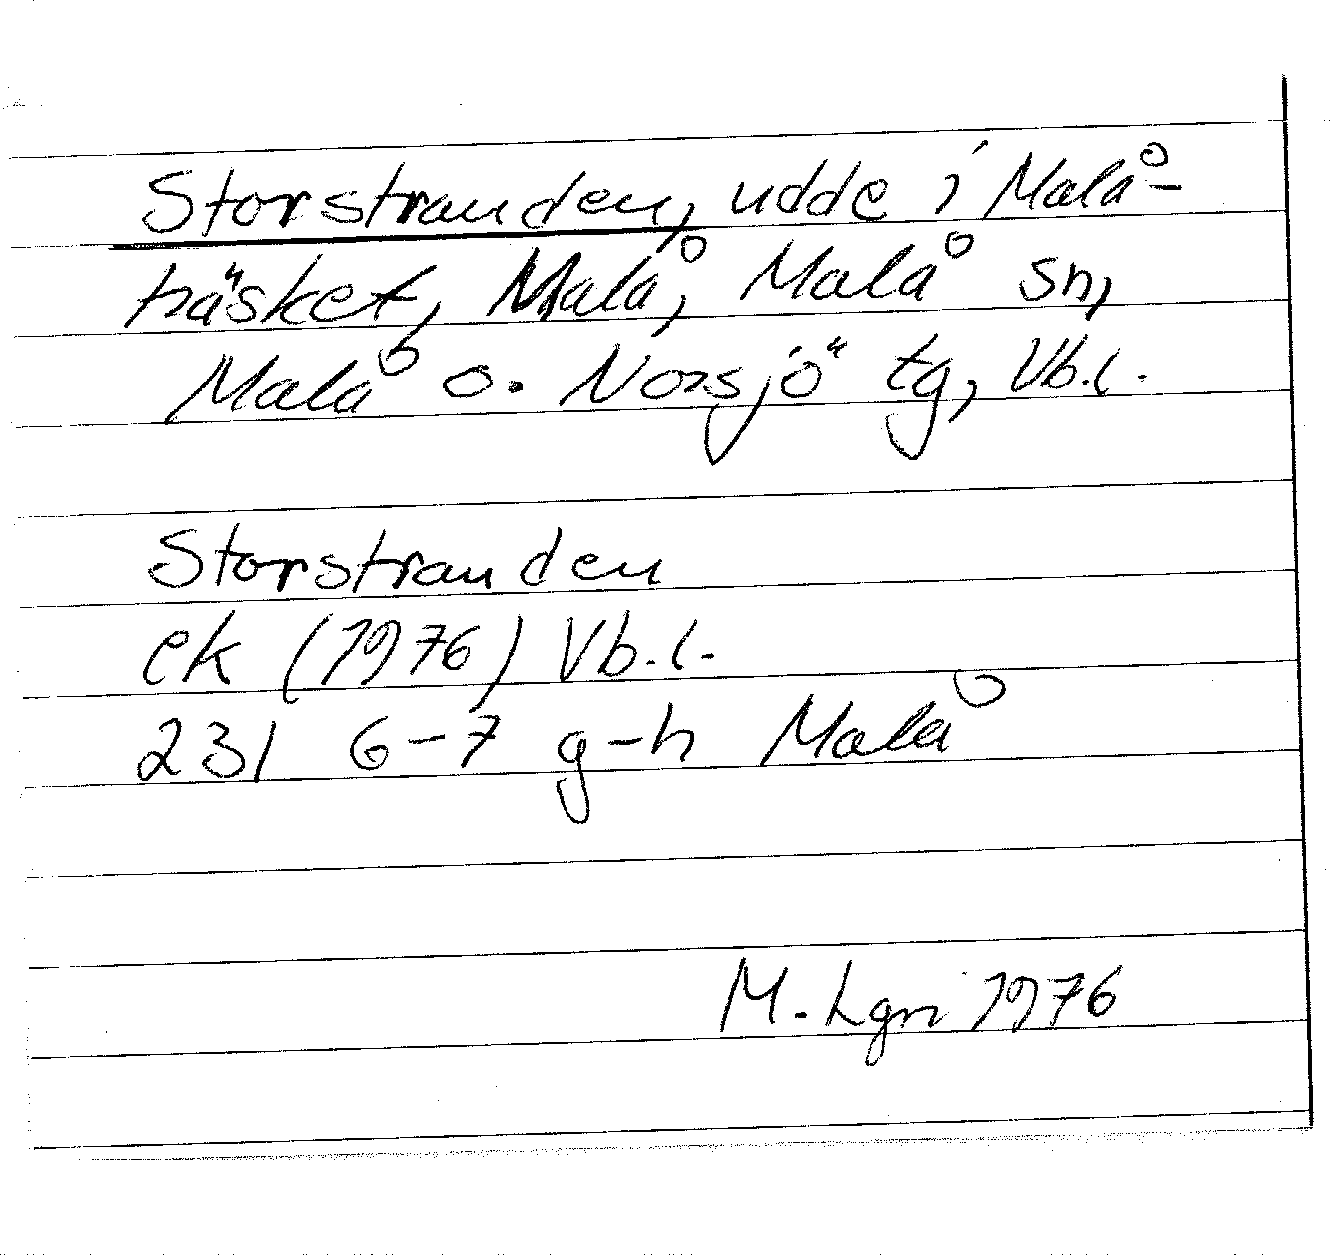 Storstranden, udde i Malå-
träsket, Malå, Malå sn,
Malå o. Norsjö tg, Vb.l.
Storstranden
ek (1976) Vb.l.
231 6-7 g-h Malå
M. Lgn 1976